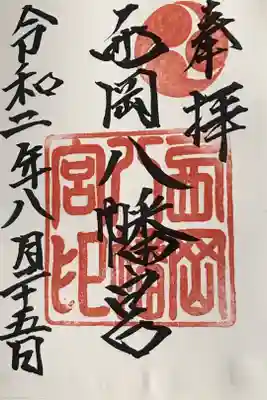 奉拝
西岡八幡宮
令和二年八月二十五日
西岡
八幡
宮